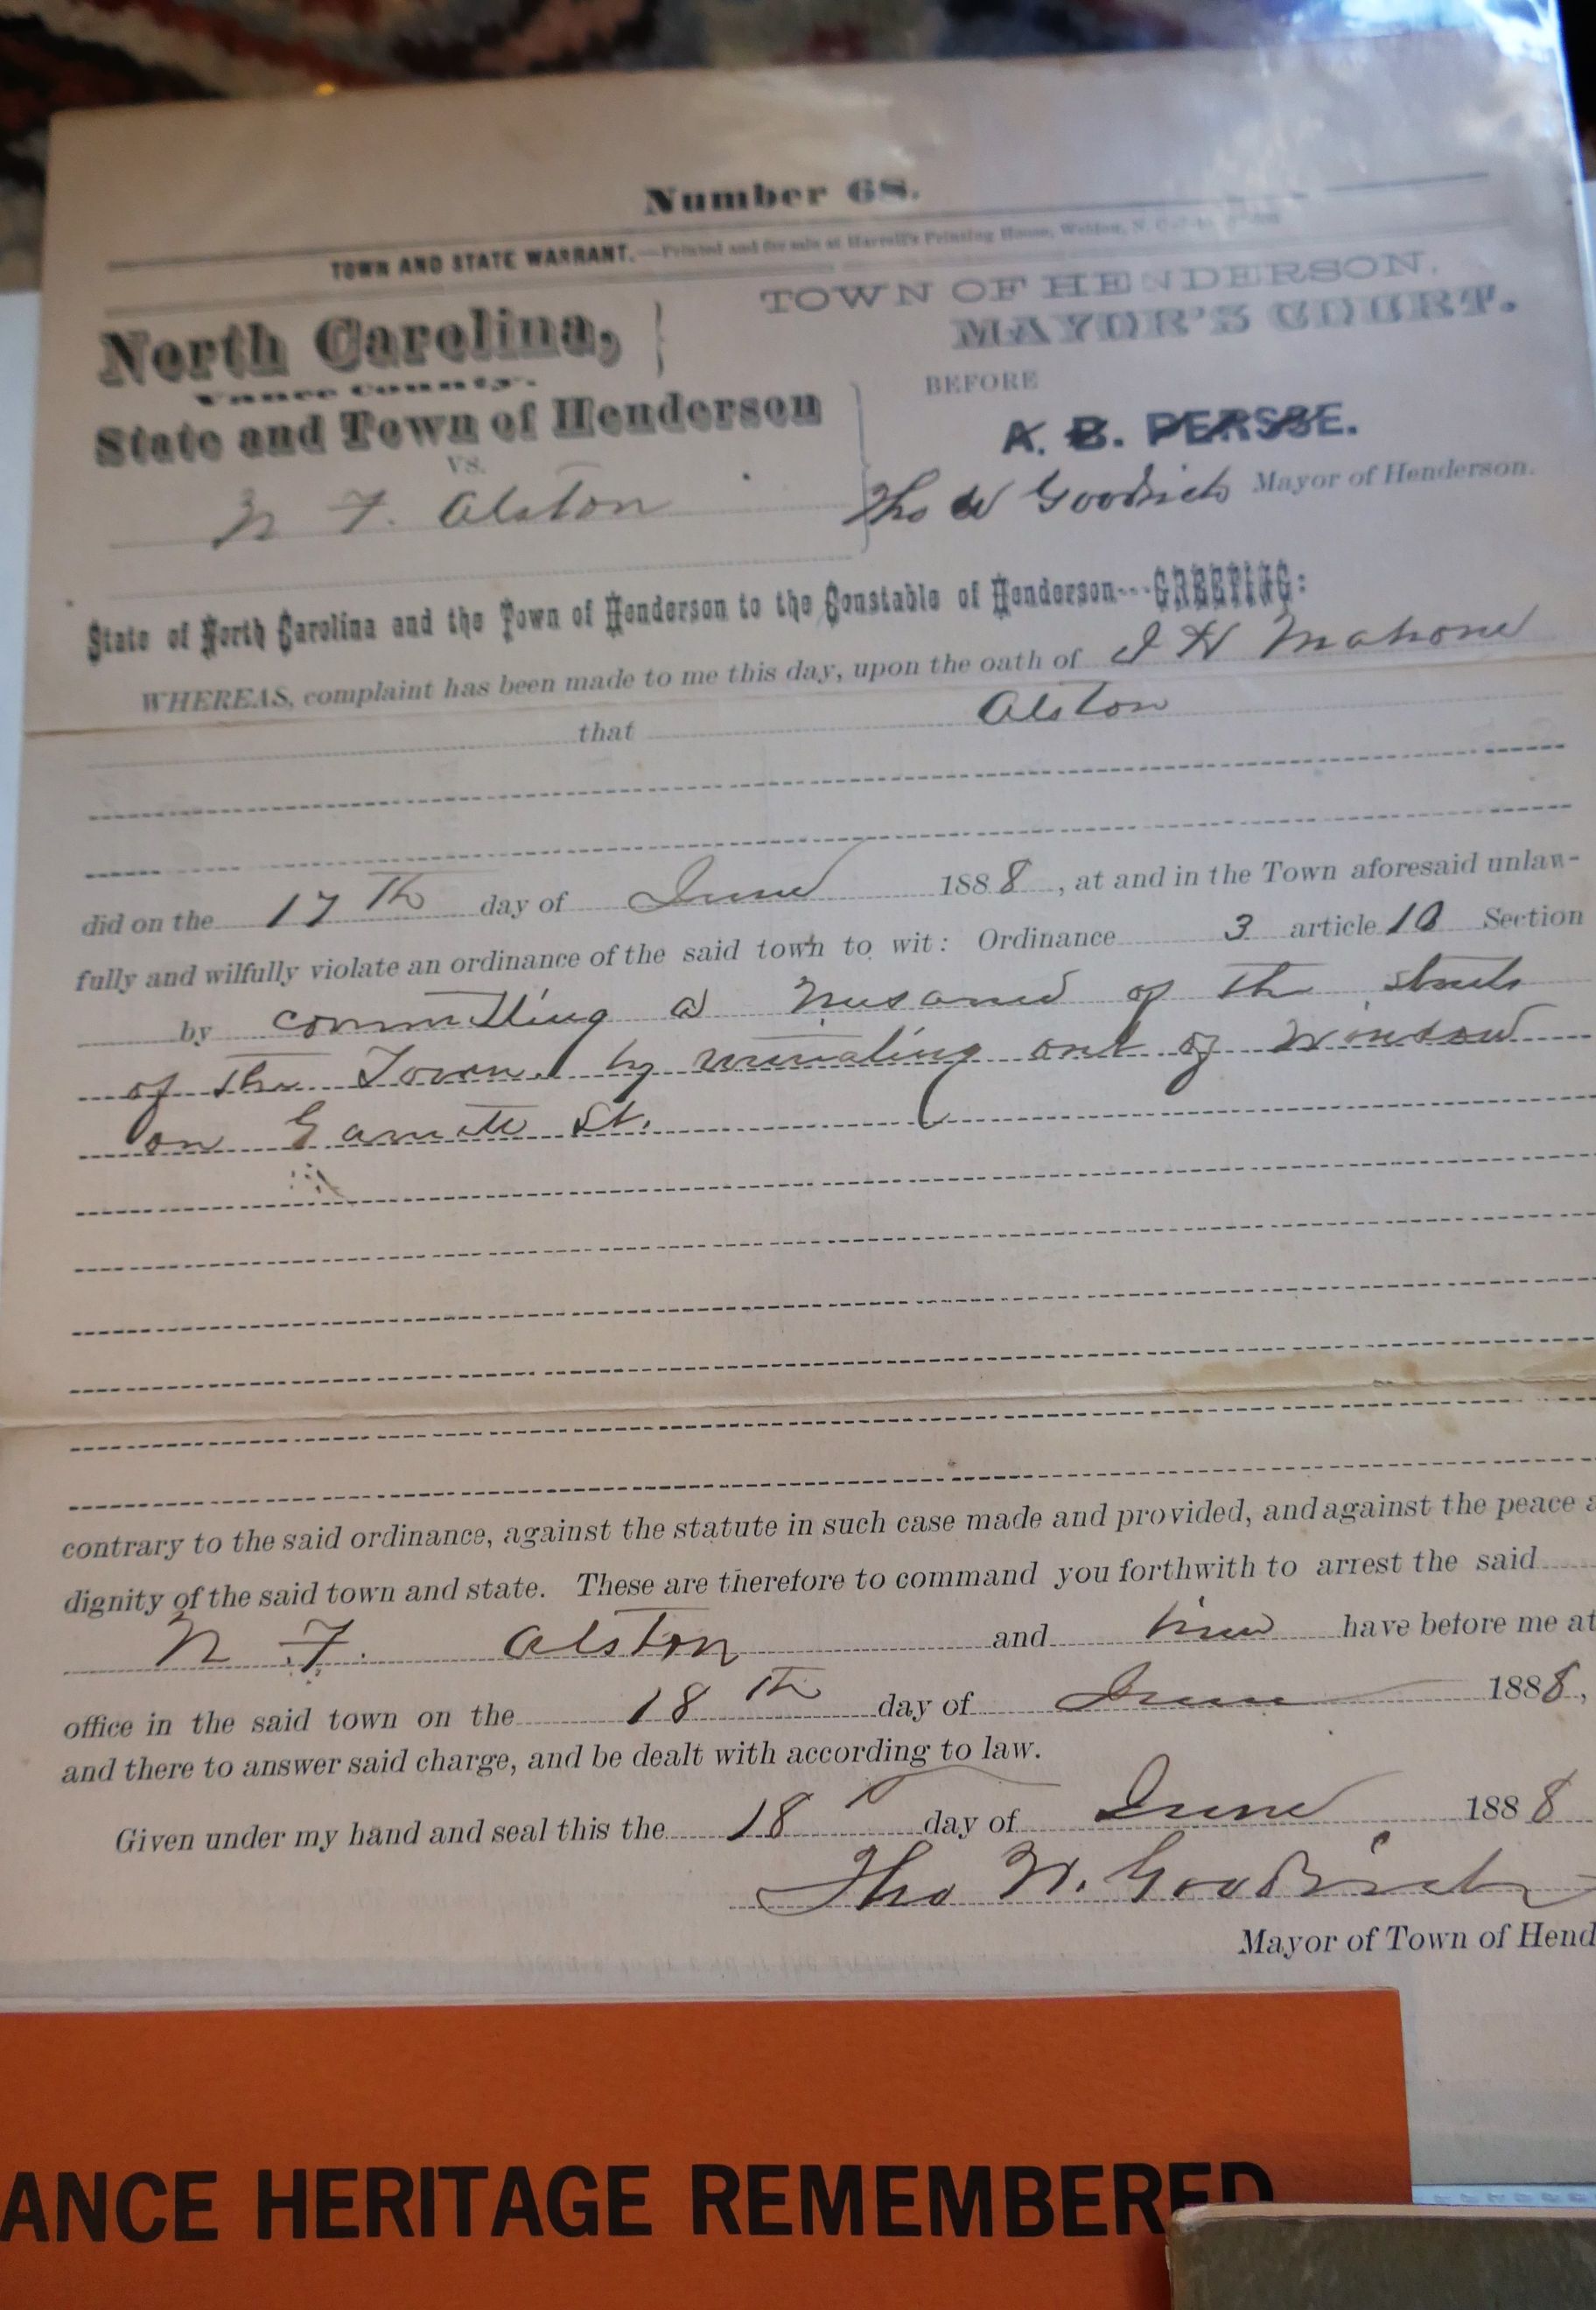 Number 68.
TOWN AND STATE WARRANT.—Printed and for sale at Harrell's Printing House, Weldon, N. C.
North Carolina,
Vance County.
TOWN OF HENDERSON,
MAYOR'S COURT.
State and Town of Henderson
VS.
N F. Alston
BEFORE
A. B. PERSSE.
Tho W Goodrich Mayor of Henderson.
State of North Carolina and the Town of Henderson to the Constable of Henderson---GREETING:
WHEREAS, complaint has been made to me this day, upon the oath of J H Mahone
that Alston
did on the 17th day of June 1888, at and in the Town aforesaid unlaw-
fully and wilfully violate an ordinance of the said town to wit: Ordinance 3 article 10 Section
by committing a nusance of the streets
of the Town by urinating out of Window
on Garnett St.
contrary to the said ordinance, against the statute in such case made and provided, and against the peace a
dignity of the said town and state. These are therefore to command you forthwith to arrest the said
N. F. Alston and him have before me at
office in the said town on the 18th day of June 1888,
and there to answer said charge, and be dealt with according to law.
Given under my hand and seal this the 18 day of June 1888
Tho W. Goodrich
Mayor of Town of Hend
ANCE HERITAGE REMEMBERED